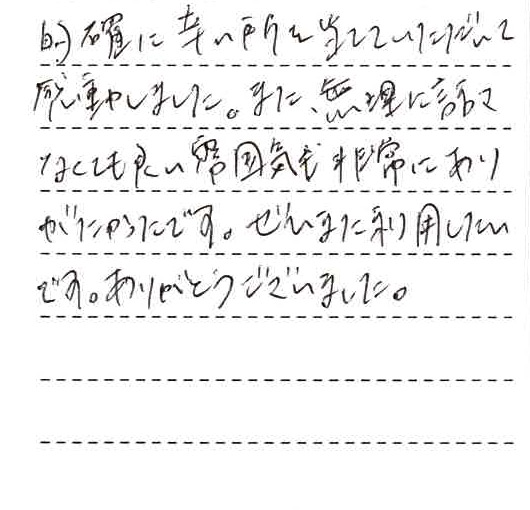 的確に辛い所を当てていただいて
感動しました。また、無理に話さ
なくても良い雰囲気も非常にあり
がたかったです。ぜひまた利用したい
です。ありがとうございました。